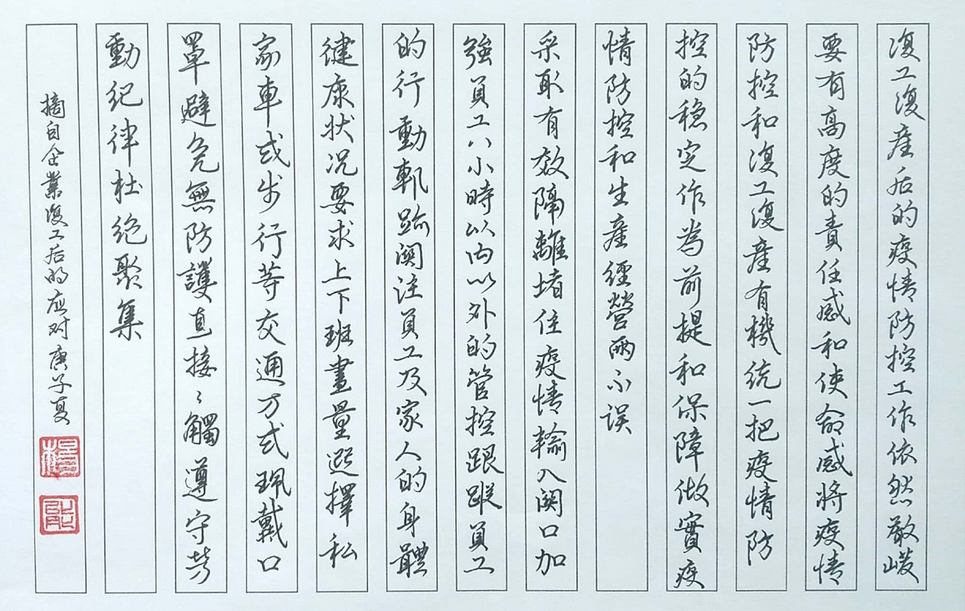 復工復産后的疫情防控工作依然嚴峻
要有高度的責任感和使命感將疫情
防控和復工復産有機統一把疫情防
控的穩定作為前提和保障做實疫
情防控和生産經營兩不誤
采取有效隔離堵住疫情輸入関口加
強員工八小時以内以外的管控跟蹤員工
的行動軌跡関注員工及家人的身體
健康狀况要求上下班盡量选擇私
家車或步行等交通方式珮戴口
罩避免無防護直接々觸遵守劳
動纪律杜绝聚集
摘自企業復工后的应对庚子夏